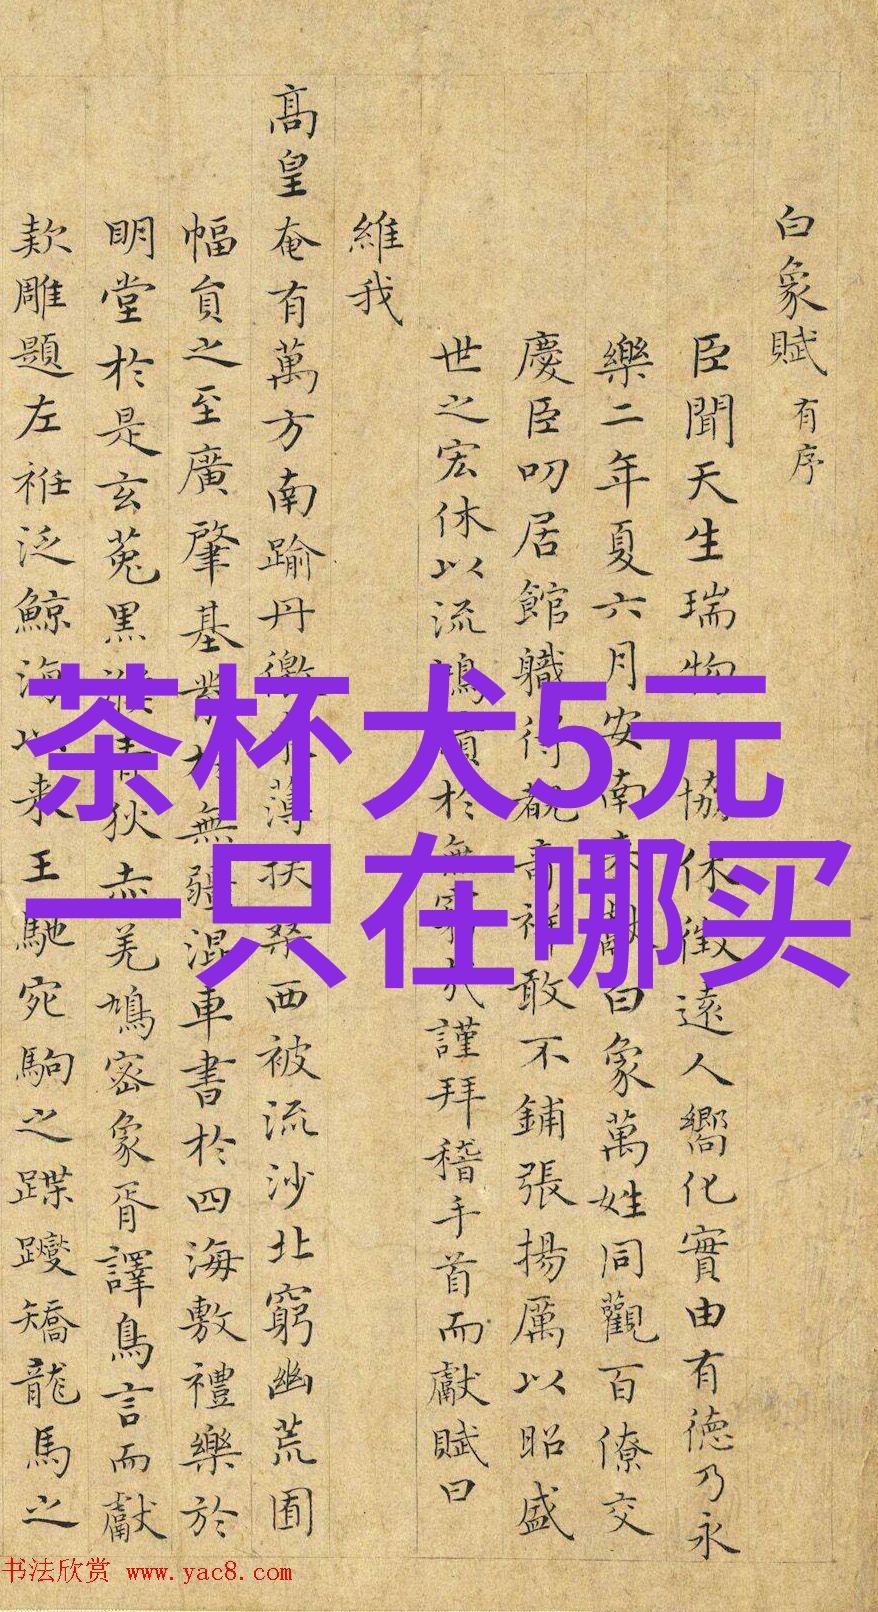 白象賦 有序
臣聞天生瑞物協休徵遠人嚮化實由有德乃永
樂二年夏六月安南來獻白象萬姓同觀百僚交
慶臣叨居館職得覩奇祥敢不鋪張揚厲以昭盛
世之宏休以流鴻於無窮謹拜稽手首而獻賦曰
維我
髙皇奄有萬方南踰丹徼薄扶桑西被流沙北窮幽荒圉
幅員之至廣肇基業於無疆混車書於四海敷禮樂於
明堂於是玄菟黑青狄赤羌鳩密象胥譯鳥言而獻
欵雕題左衽泛鯨海以来王馳宛駒之蹀躞矯龍馬之
茶杯犬5元
一只在哪买
书法欣赏 www.yac8.com